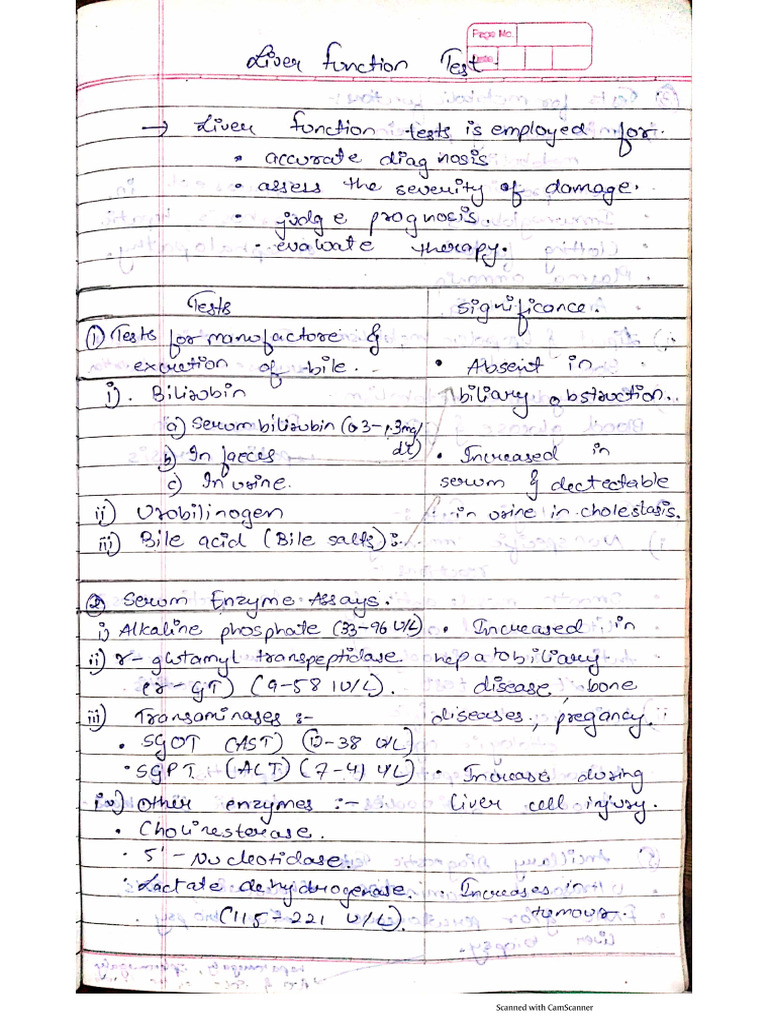 Page No.
Date
Liver function Test
→ Liver function tests is employed for.
• accurate diagnosis
• assess the severity of damage.
• judge prognosis
• evaluate therapy.
Tests
significance.
① Tests for manufactore &
excretion of bile.
i). Bilirubin
a) Serum bilirubin (0.3-1.3mg/
dl)
b) In faeces
c) In urine.
ii) Urobilinogen
iii) Bile acid (Bile salts):-
• Absent in
biliary obstruction.
• Increased in
serum & dectectable
in urine in cholestasis.
② Serum Enzyme Assays.
i) Alkaline phosphate (33-96 U/L)
ii) r-glutamyl transpeptidase
(r-GT) (9-58 IU/L).
iii) Transaminases :-
• SGOT (AST) (12-38 U/L)
• SGPT (ALT) (7-41 U/L)
iv) Other enzymes :-
• Cholinesterase.
• 5'-Nucleotidase.
• Lactate dehydrogenase.
(115-221 U/L).
• Increased in
hepatobiliary
disease, bone
diseases, pregancy.
• Increase during
liver cell injury.
• Increases in
tumour.
Scanned with CamScanner